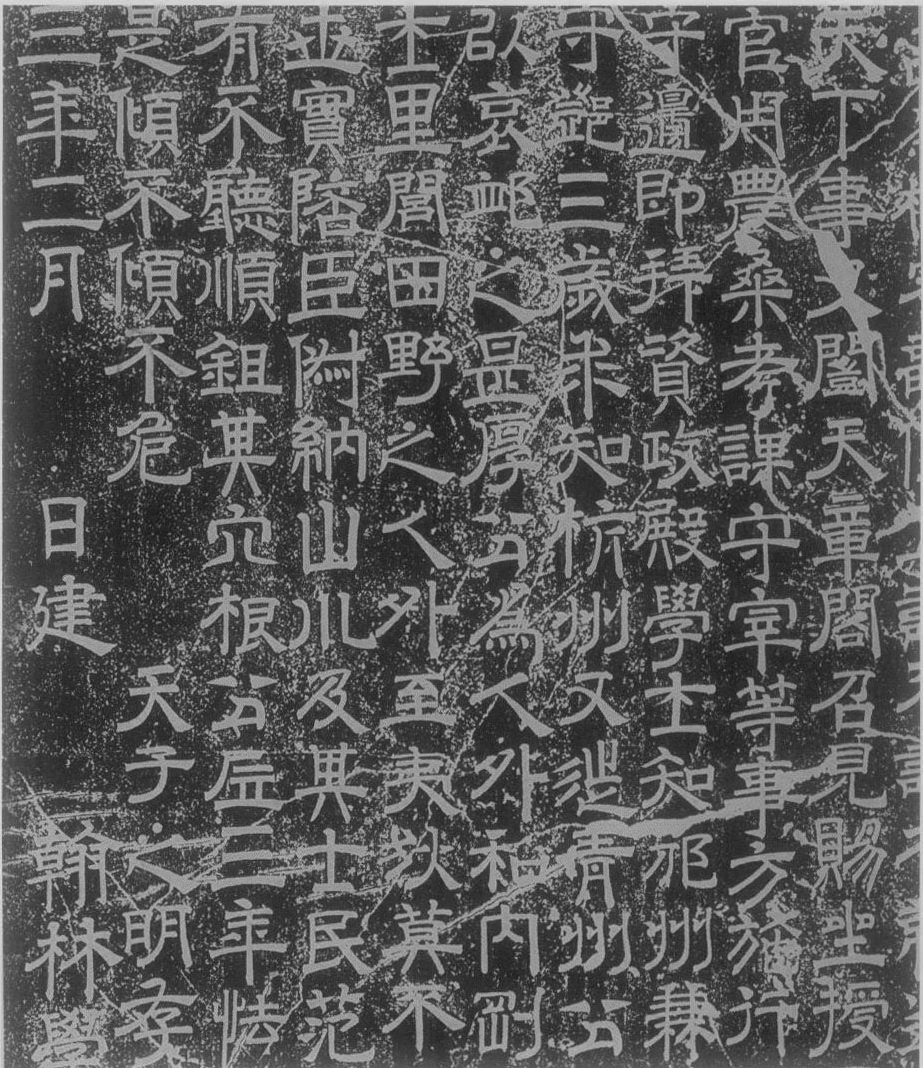 天下事又開天章閣召見賜坐授
官州農桑考課守宰等事方施行
守邊即拜資政殿學士知邠州兼
守鄧三歲求知杭州又徙青州公
以哀卹之是厚公為人外和內剛
士里閭田野之人外至夷狄莫不
世實陪臣附納山川及其士民范
有不聽順鉏其穴根公居三年怯
是傾不傾不危 天子之明存
三年二月 日建 翰林學